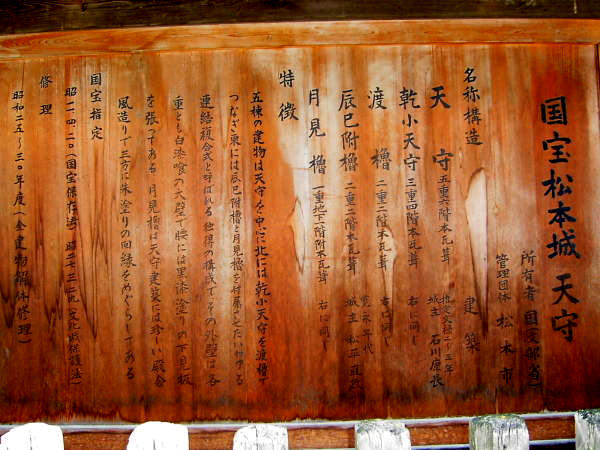 国宝松本城 天守
所有者 国(文部省)
管理団体 松本市
名称構造 建築
天守 五重六階本瓦葺 推定文禄二~三年
城主 石川康長
乾小天守 三重四階本瓦葺 右に同じ
渡櫓 二重二階本瓦葺 右に同じ
辰巳附櫓 二重二階本瓦葺 寛永年代
城主 松平直政
月見櫓 一重地下一階附本瓦葺 右に同じ
特徴
五棟の建物は天守を中心に北には乾小天守を渡櫓で
つなぎ東には辰巳附櫓と月見櫓を付属させた
連結複合式と呼ばれる独得の構成で その外壁は各
重とも白漆喰の大壁で腰には黒漆塗りの下見板
を張ってある 月見櫓は天守建築には珍しい殿舎
風造りで三方に朱塗りの回縁をめぐらしてある
国宝指定
昭一一・四・二〇(国宝保存法) 昭二七・三・二九(文化財保護法)
修理
昭和二五~三〇年度(全建物解体修理)